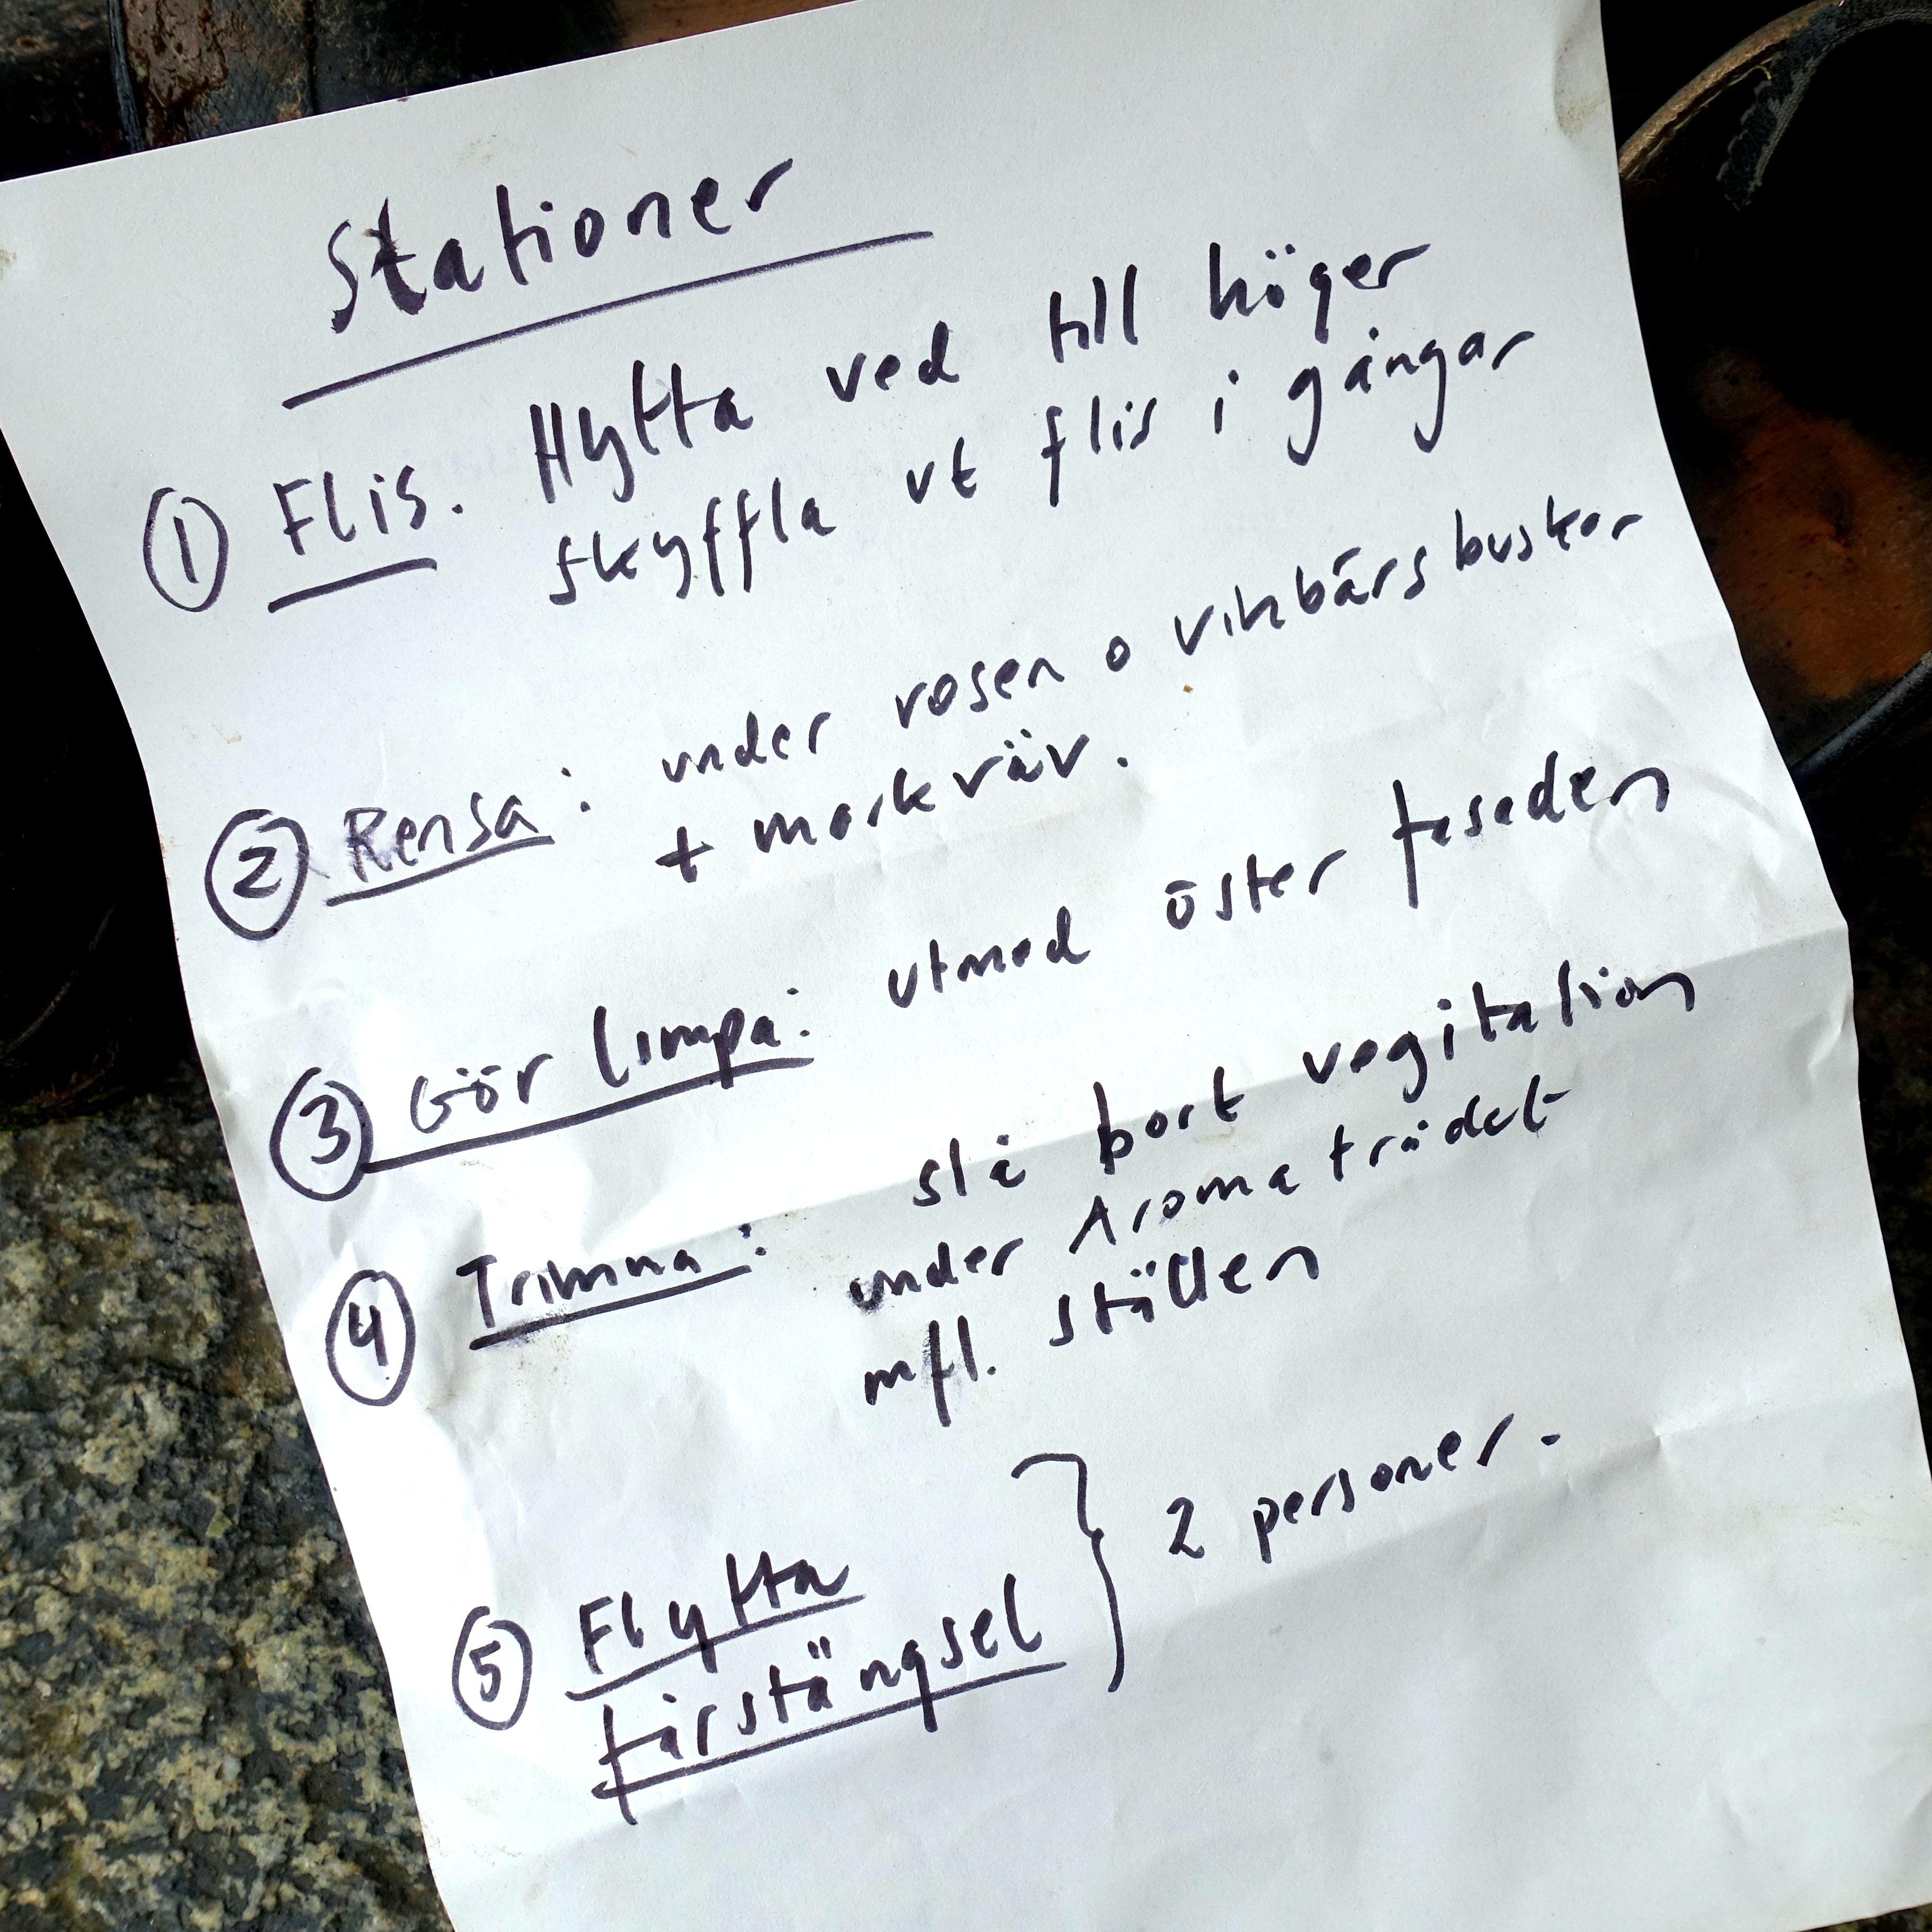 Stationer
① Flis. Flytta ved till höger
skyffla ut flis i gångar
② Rensa: under rosen o vinbärsbuskar
+ markväv.
③ Gör limpa: utmed öster fasaden
④ Trimma: slå bort vegitation
under Aromaträdet
mfl. ställen
⑤ Flytta
fårstängsel } 2 personer.